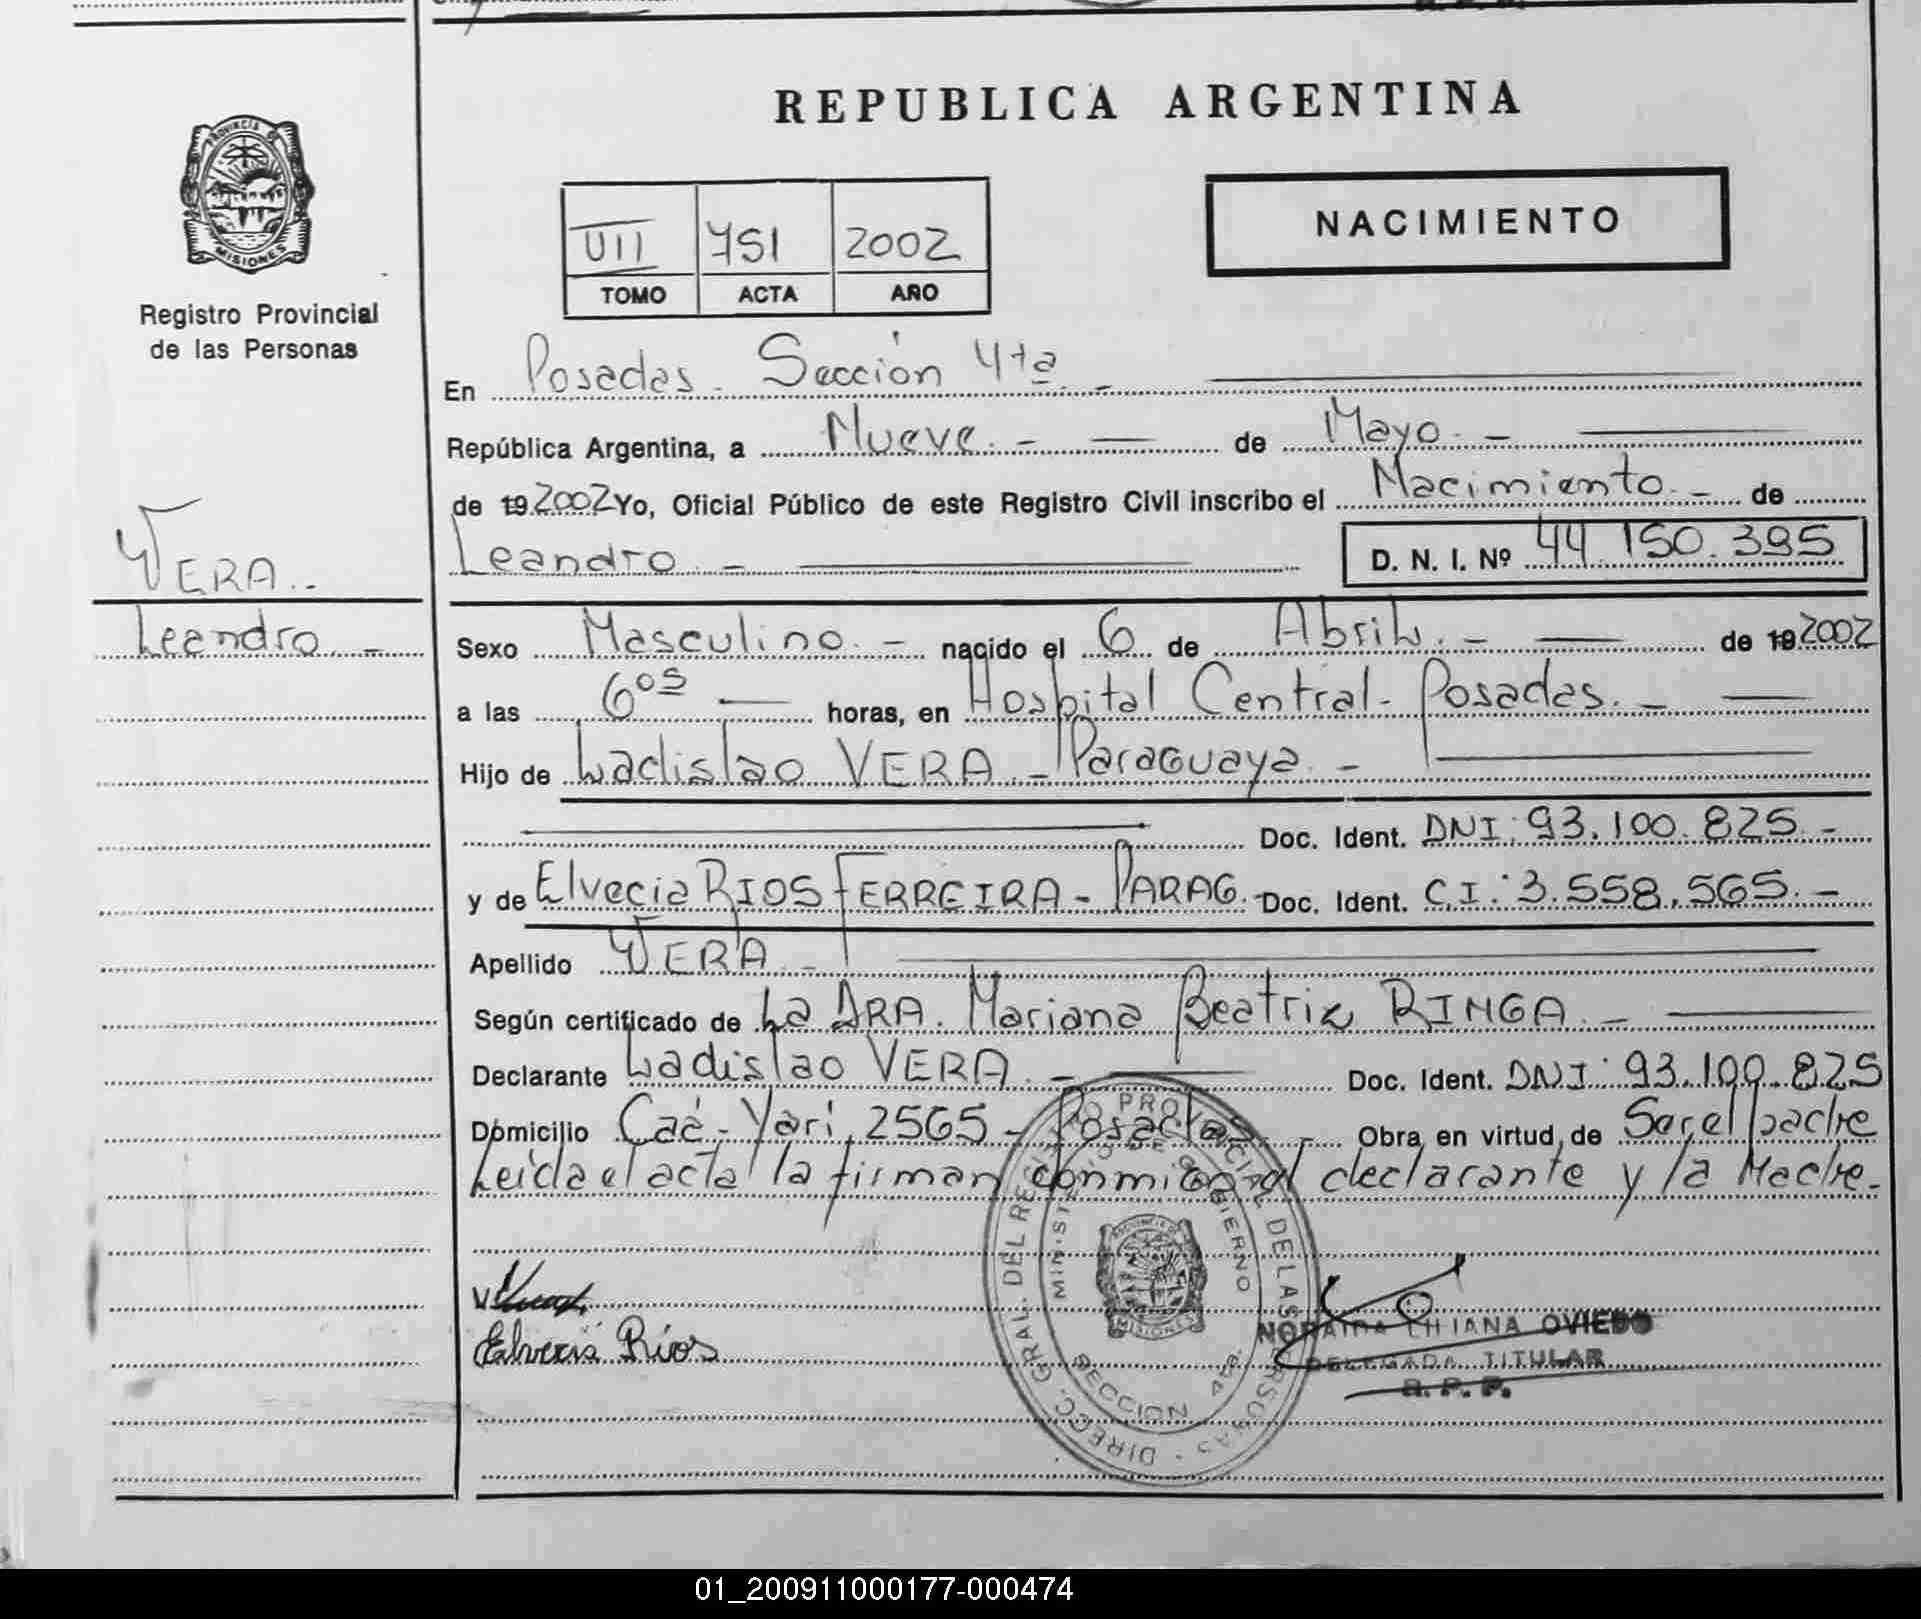 REPUBLICA ARGENTINA
PROVINCIA DE
MISIONES
Registro Provincial
de las Personas
NACIMIENTO
VII 751 2002
TOMO ACTA AÑO
En Posadas. Sección 4ta. -
República Argentina, a Nueve. - de Mayo. -
de 19 2002 Yo, Oficial Público de este Registro Civil inscribo el Nacimiento. - de
Leandro. - D. N. I. Nº 44.150.395
VERA. -
Leandro. -
Sexo Masculino. - nacido el 6 de Abril. - de 19 2002
a las 6⁰⁵ horas, en Hospital Central - Posadas. -
Hijo de Ladislao VERA. - Paraguaya. -
Doc. Ident. DNI: 93.100.825. -
y de Elvecia RIOS FERREIRA - PARAG. - Doc. Ident. C.I: 3.558.565. -
Apellido VERA. -
Según certificado de La DRA. Mariana Beatriz RINGA. -
Declarante Ladislao VERA. - Doc. Ident. DNI: 93.100.825
Domicilio Caá - Yarí 2565 - Posadas - Obra en virtud de Ser el padre
Leída el acta la firman conmigo el declarante y la Madre. -
DIRECC. GRAL. DEL REGISTRO PROVINCIAL DE LAS PERSONAS
MINISTERIO DE GOBIERNO
PROVINCIA DE
MISIONES
SECCION 4ta.
Elvecia Ríos
NORAIDA LILIANA OVIEDO
DELEGADA TITULAR
R. P. P.
01_200911000177-000474